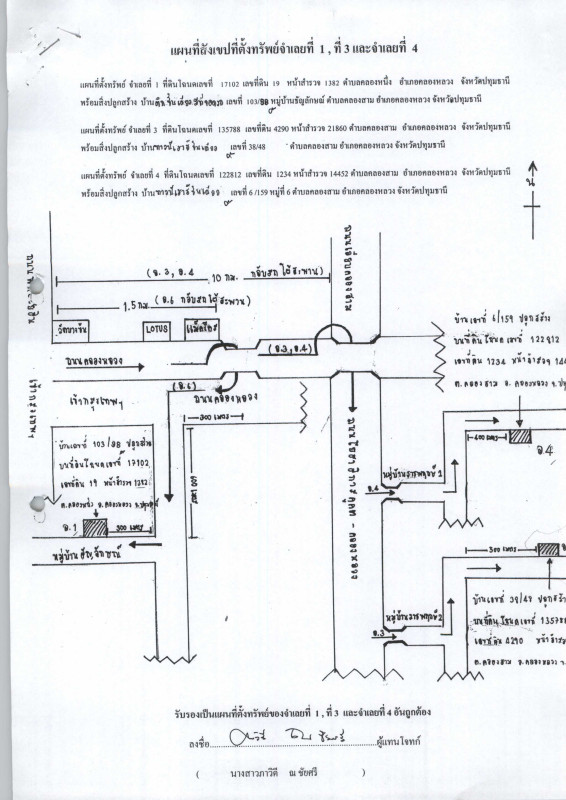 แผนที่สังเขปที่ตั้งทรัพย์จำเลยที่ 1 , ที่ 3 และจำเลยที่ 4
แผนที่ตั้งทรัพย์ จำเลยที่ 1 ที่ดินโฉนดเลขที่ 17102 เลขที่ดิน 19 หน้าสำรวจ 1382 ตำบลคลองหนึ่ง อำเภอคลองหลวง จังหวัดปทุมธานี
พร้อมสิ่งปลูกสร้าง บ้าน เลขที่ 103/88 หมู่บ้านธัญลักษณ์ ตำบลคลองสาม อำเภอคลองหลวง จังหวัดปทุมธานี
แผนที่ตั้งทรัพย์ จำเลยที่ 3 ที่ดินโฉนดเลขที่ 135788 เลขที่ดิน 4290 หน้าสำรวจ 21860 ตำบลคลองสาม อำเภอคลองหลวง จังหวัดปทุมธานี
พร้อมสิ่งปลูกสร้าง บ้าน เลขที่ 38/48 ตำบลคลองสาม อำเภอคลองหลวง จังหวัดปทุมธานี
แผนที่ตั้งทรัพย์ จำเลยที่ 4 ที่ดินโฉนดเลขที่ 122812 เลขที่ดิน 1234 หน้าสำรวจ 14452 ตำบลคลองสาม อำเภอคลองหลวง จังหวัดปทุมธานี
พร้อมสิ่งปลูกสร้าง บ้าน เลขที่ 6/159 หมู่ที่ 6 ตำบลคลองสาม อำเภอคลองหลวง จังหวัดปทุมธานี
น
ถนนพหลโยธิน
ถนนเลียบคลองสาม
(จ.3, จ.4)
10 กม. กลับรถใต้สะพาน
1.5 กม. กลับรถใต้สะพาน)
LOTUS
แม็คโคร
ถนนคลองหลวง
(จ.3, จ.4)
บ้านเลขที่ 6/159 ปลูกสร้าง
บนที่ดินโฉนดเลขที่ 122812
เลขที่ดิน 1234 หน้าสำรวจ 144
ต.คลองสาม อ.คลองหลวง จ.
เข้ากรุงเทพฯ
ถนนคลองหลวง
300 เมตร
600 เมตร
บ้านเลขที่ 103/88 ปลูกสร้าง
บนที่ดินโฉนดเลขที่ 17102
เลขที่ดิน 19 หน้าสำรวจ 1382
จ.1
300 เมตร
หมู่บ้านธัญลักษณ์
400 เมตร
จ.4
หมู่บ้านพฤกษ์ 1
จ.4
300 เมตร
บ้านเลขที่ 38/48 ปลูกสร้าง
บนที่ดินโฉนดเลขที่ 13578
เลขที่ดิน 4290 หน้าสำรวจ
ต.คลองสาม อ.คลองหลวง จ.
จ.3
รับรองเป็นแผนที่ตั้งทรัพย์ของจำเลยที่ 1 , ที่ 3 และจำเลยที่ 4 อันถูกต้อง
ลงชื่อ ผู้แทนโจทก์
( นางสาวภาวิดี ณ ชัยศรี )